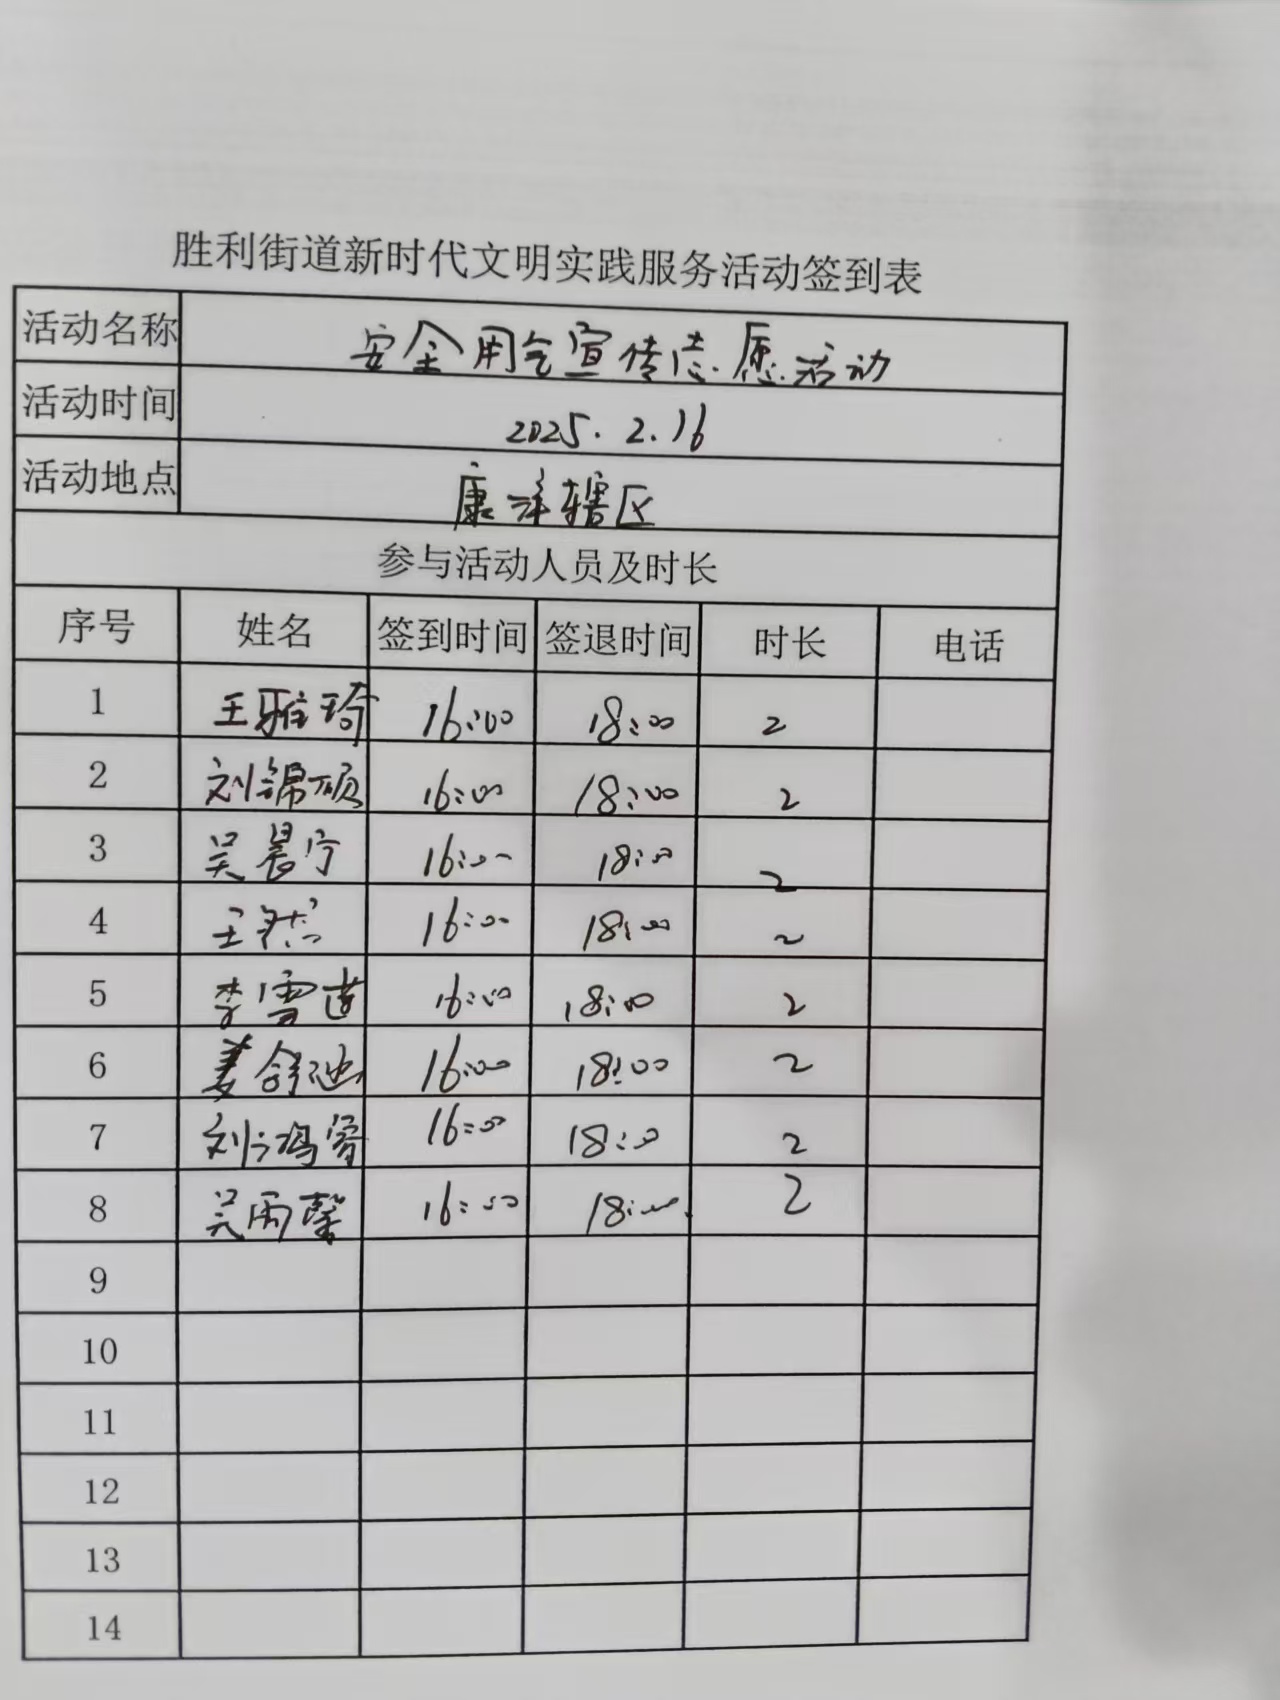 胜利街道新时代文明实践服务活动签到表
活动名称 安全用气宣传志愿活动
活动时间 2025.2.16
活动地点 康洋辖区
参与活动人员及时长
序号 姓名 签到时间 签退时间 时长 电话
1 王雅琦 16:00 18:00 2
2 刘锦硕 16:00 18:00 2
3 吴晨宁 16:00 18:00 2
4 王 16:00 18:00 2
5 李雪 16:00 18:00 2
6 姜舒 16:00 18:00 2
7 刘 16:00 18:00 2
8 吴雨馨 16:00 18:00 2
9
10
11
12
13
14